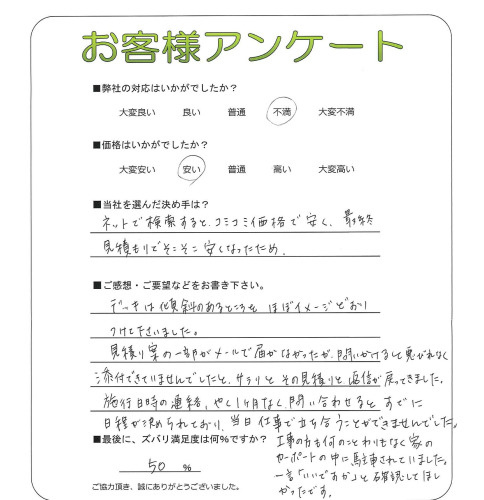 お客様アンケート
■弊社の対応はいかがでしたか？
大変良い　良い　普通　不満　大変不満
■価格はいかがでしたか？
大変安い　安い　普通　高い　大変高い
■当社を選んだ決め手は？
ネットで検索すると、コミコミ価格で安く、最終
見積もりでそこそこ安くなったため。
■ご感想・ご要望などをお書き下さい。
デッキは傾斜のあるところも ほぼイメージどおり
つけて下さいました。
見積り案の一部がメールで届かなかったが、問いかけると悪びれなく
添付できていませんでしたと、サラリと その見積りと返信が戻ってきました。
施行日時の連絡、やく1ヶ月なく、問い合わせると、すでに
日程が決められており、当日仕事で立ち合うことができませんでした。
工事の方も何のことわりもなく家の
カーポートの中に駐車されていました。
一言「いいですか」と確認してほし
かったです。
■最後に、ズバリ満足度は何％ですか？
50 ％
ご協力頂き、誠にありがとうございました。